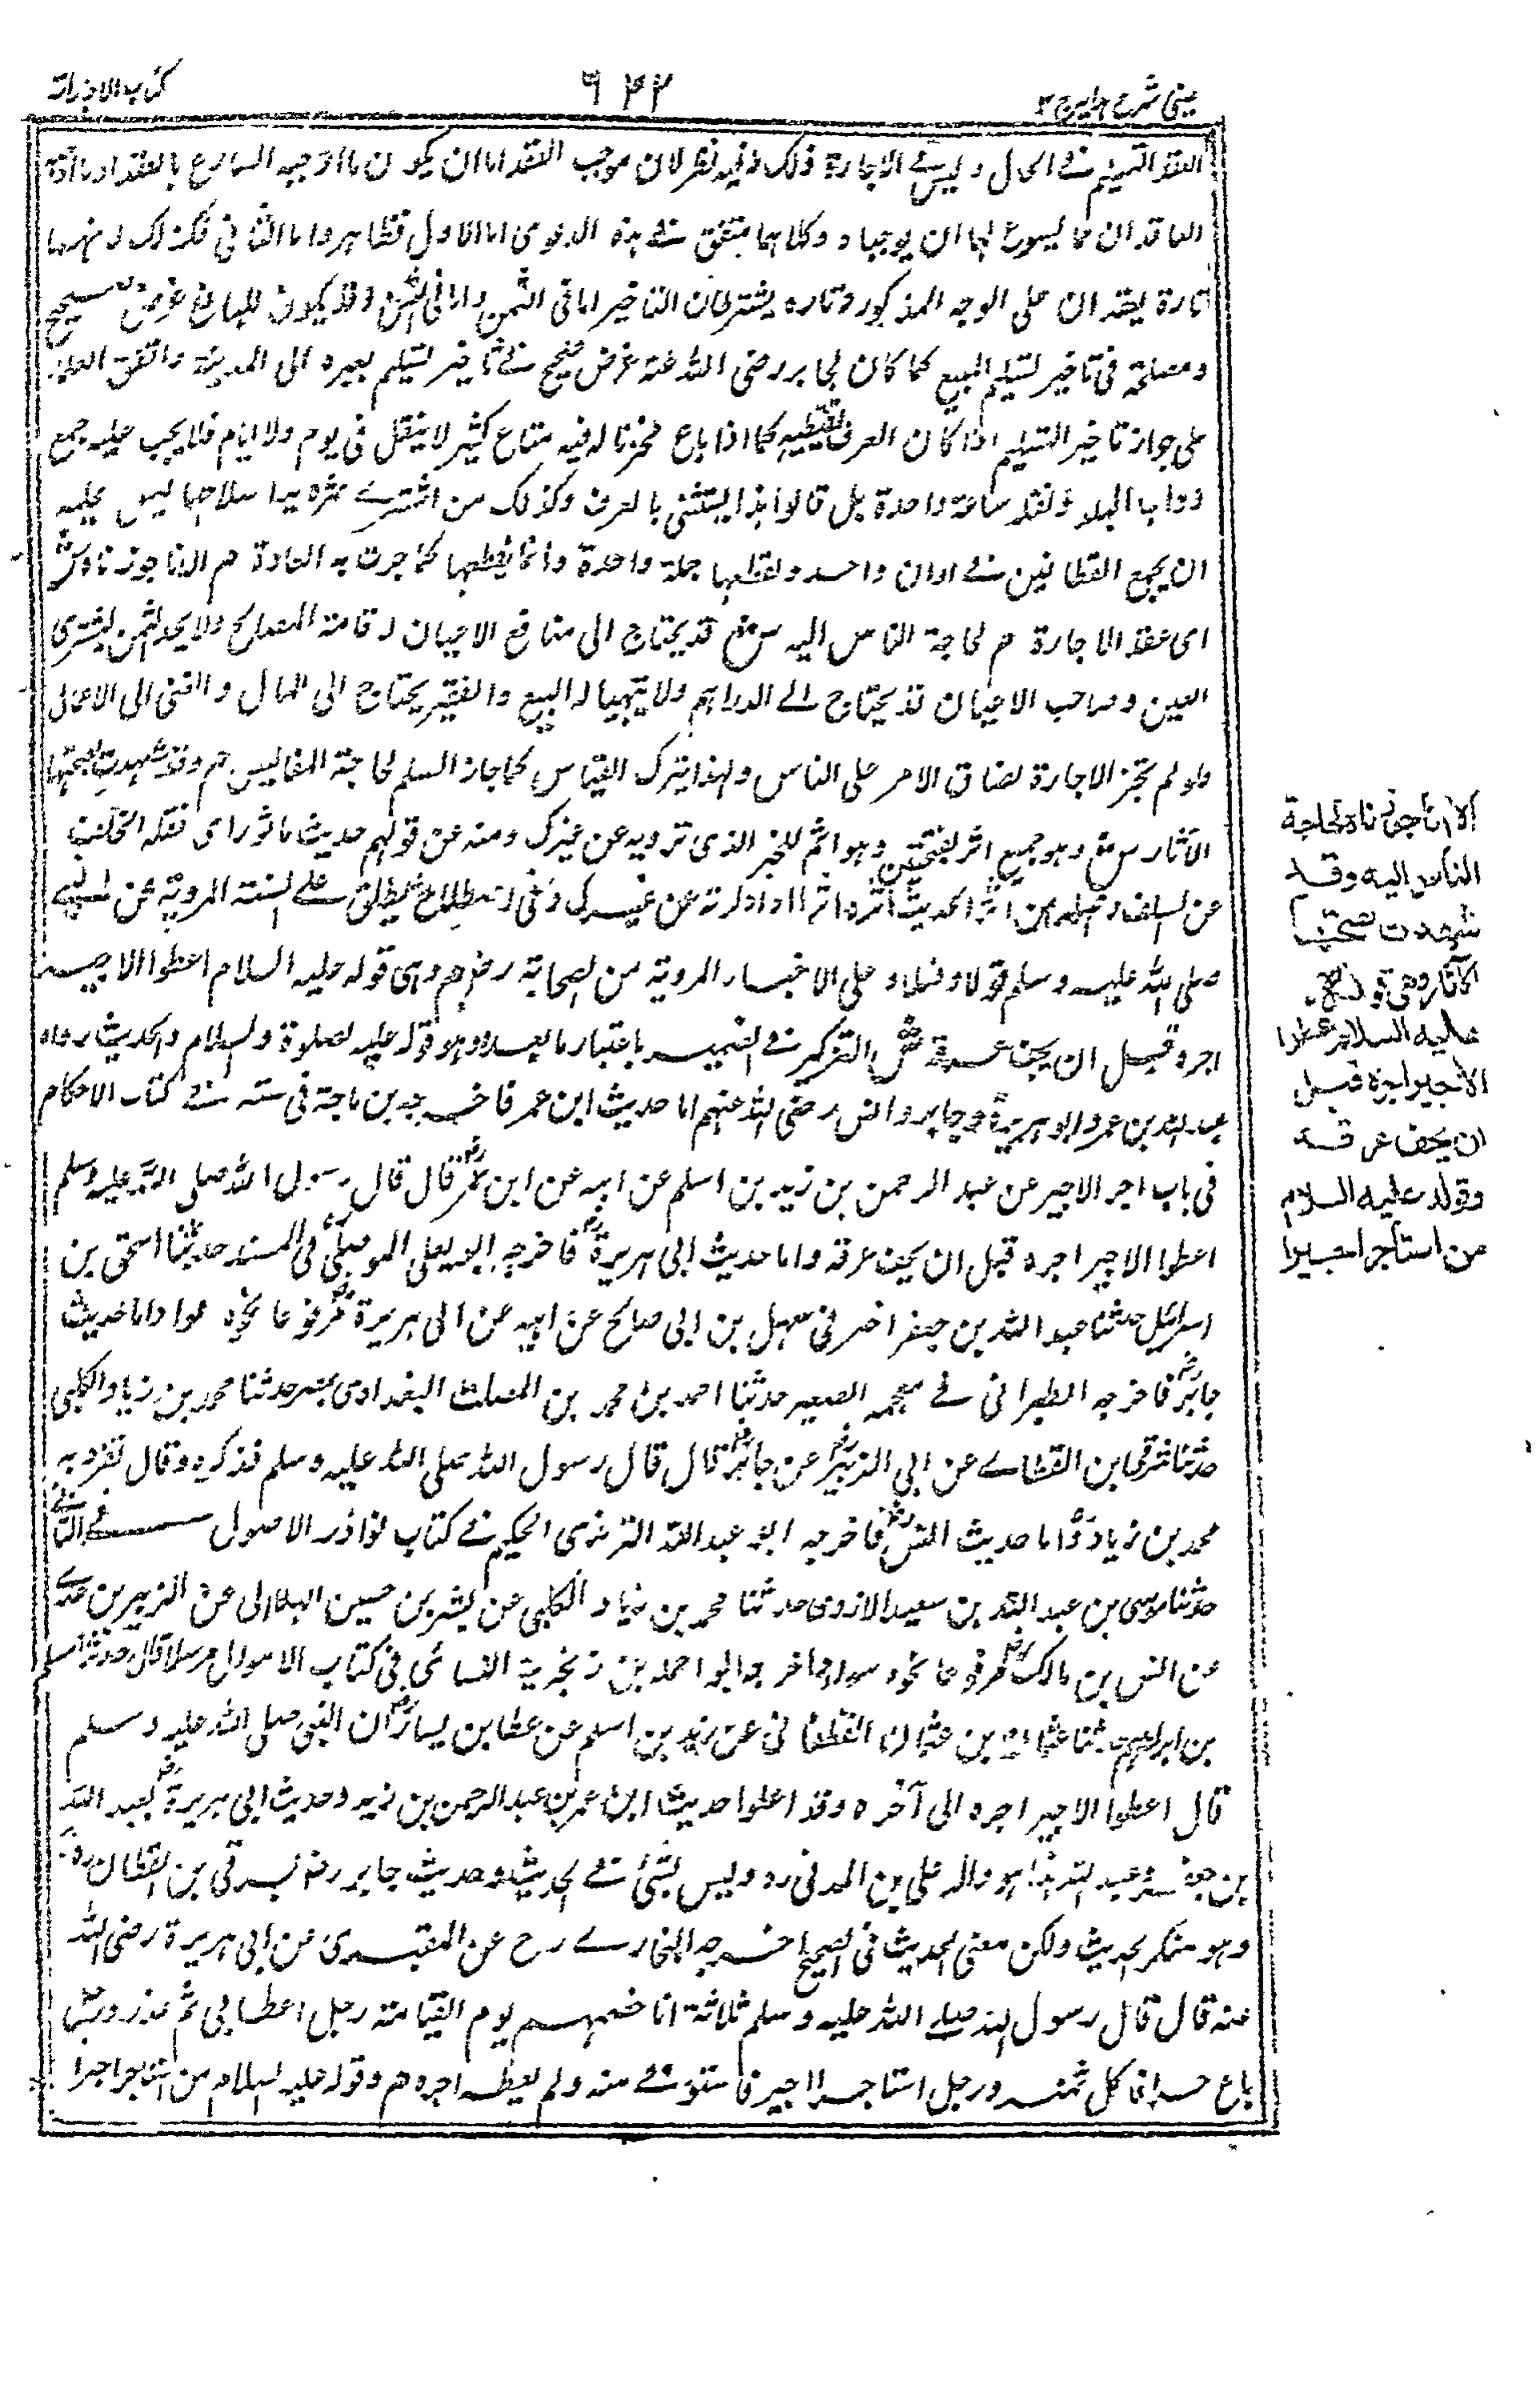 عینی شرح ہدایہ ج ۳
۶۴۴
کتاب الاجارات
العقد التسلیم فی الحال ولیس فی الاجارۃ ذلک وفیہ نظر لان موجب العقد اما ان یکون ما اوجبہ الشارع بالعقد او ما اوجبہ
العاقدان مما یسوغ لہما ان یوجباہ وکلاہما منتف فی ہذہ الدعوی اما الاول فظاہر واما الثانی فکذلک لانہما
تارۃ یعقدان علی الوجہ المذکور وتارہ یشترطان التاخیر اما فی الثمن واما فی المثمن وقد یکون للبائع غرض صحیح
ومصلحۃ فی تاخیر تسلیم المبیع کما کان لجابر رضی اللہ عنہ غرض صحیح فی تاخیر تسلیم بعیرہ الی المدینۃ واتفق العلماء
علی جواز تاخیر التسلیم اذا کان العرف یقتضیہ کما اذا باع مخزنا لہ فیہ متاع کثیر لا ینقل فی یوم ولا ایام فلا یجب علیہ جمع
دواب البلد ونقلہ ساعۃ واحدۃ بل قالوا ہذا یستثنی بالعرف وکذلک من اشتری ثمرہ بدا صلاحہا لیس علیہ
ان یجمع القطافین فی اوان واحد ویقطفہا جملۃ واحدۃ وانما یقطفہا کما جرت بہ العادۃ م الا انا جوزناہ ش
ای عقد الاجارۃ م لحاجۃ الناس الیہ ش قد یحتاج الی منافع الاعیان لاقامۃ المصالح ولا یجد الثمن لیشتری
العین وصاحب الاعیان قد یحتاج الی الدراہم ولا یتہیا لہ البیع والفقیر یحتاج الی المال والغنی الی الاعمال
فلو لم تجز الاجارۃ لضاق الامر علی الناس ولہذا یترک القیاس کما جاز السلم لحاجۃ المفالیس م وقد شہدت بصحتہا
الآثار ش وہو جمع اثر بفتحتین وہو اسم للخبر الذی ترویہ عن غیرک ومنہ عن قولہم حدیث ماثور ای نقلہ الخلف
عن السلف واصلہ من اثرت الحدیث آثرہ اثرا اذا ذکرتہ عن غیرک وفی الاصطلاح یطلق علی السنۃ المرویۃ عن النبی
صلی اللہ علیہ وسلم قولا وفعلا وعلی الاخبار المرویۃ من الصحابۃ رض م وہی قولہ علیہ السلام اعطوا الاجیر
اجرہ قبل ان یجف عرقہ ش التذکیر فی الضمیر باعتبار ما بعدہ وہو قولہ علیہ الصلوۃ والسلام والحدیث رواہ
عبد اللہ بن عمر وابو ہریرۃ وجابر وانس رضی اللہ عنہم اما حدیث ابن عمر فاخرجہ بن ماجۃ فی سننہ فی کتاب الاحکام
فی باب اجر الاجیر عن عبد الرحمن بن زید بن اسلم عن ابیہ عن ابن عمرؓ قال قال رسول اللہ صلی اللہ علیہ وسلم
اعطوا الاجیر اجرہ قبل ان یجف عرقہ واما حدیث ابی ہریرۃؓ فاخرجہ ابو یعلی الموصلی فی المسند حدثنا اسحق بن
اسرائیل حدثنا عبد اللہ بن جعفر اخبرنی سہیل بن ابی صالح عن ابیہ عن ابی ہریرۃؓ مرفوعا نحوہ سوا واما حدیث
جابرؓ فاخرجہ الطبرانی فی معجمہ الصغیر حدثنا احمد بن محمد بن الصلت البغدادی بمصر حدثنا محمد بن زیاد الکلبی
حدثنا شرقی ابن القطامی عن ابی الزبیرؓ عن جابرؓ قال قال رسول اللہ صلی اللہ علیہ وسلم فذکرہ وقال تفرد بہ
محمد بن زیاد واما حدیث انسؓ فاخرجہ ابو عبد اللہ الترمذی الحکیم فی کتاب نوادر الاصول
حدثنا موسی بن عبد اللہ بن سعید الازدی حدثنا محمد بن زیاد الکلبی عن بشر بن حسین الہلالی عن الزبیر بن عدی
عن انس بن مالکؓ مرفوعا نحوہ سوا واخرجہ ابو احمد بن زنجویہ النسائی فی کتاب الاموال مرسلا قال حدثنا مسلم
بن ابراہیم حدثنا عثمان بن عثمان الغطفانی عن زید بن اسلم عن عطا بن یسارؓ ان النبی صلی اللہ علیہ وسلم
قال اعطوا الاجیر اجرہ الی آخرہ وقد اعلوا حدیث ابن عمر بن عبد الرحمن بن زید وحدیث ابی ہریرۃؓ بعبد اللہ
بن جعفر وعبد اللہ ہذا ہو والد علی بن المدنی رہ ولیس بشئ فی الحدیث وحدیث جابر رض بشرقی بن القطان
وہو منکر الحدیث ولکن معنی الحدیث فی الصحیح اخرجہ البخاری رح عن المقبری عن ابی ہریرۃ رضی اللہ
عنہ قال قال رسول اللہ صلی اللہ علیہ وسلم ثلاثۃ انا خصمہم یوم القیامۃ رجل اعطا بی ثم غدر ورجل
باع حرا فاکل ثمنہ ورجل استاجر اجیرا فاستوفی منہ ولم یعطہ اجرہ م وقولہ علیہ السلام من استاجر اجیرا
الا انا جوزناہ لحاجة
الناس الیه وقد
شهدت بصحتها
الآثار وهی قوله
علیه السلام اعطوا
الاجیر اجره قبل
ان یجف عرقه
وقوله علیه السلام
من استأجر اجیرا